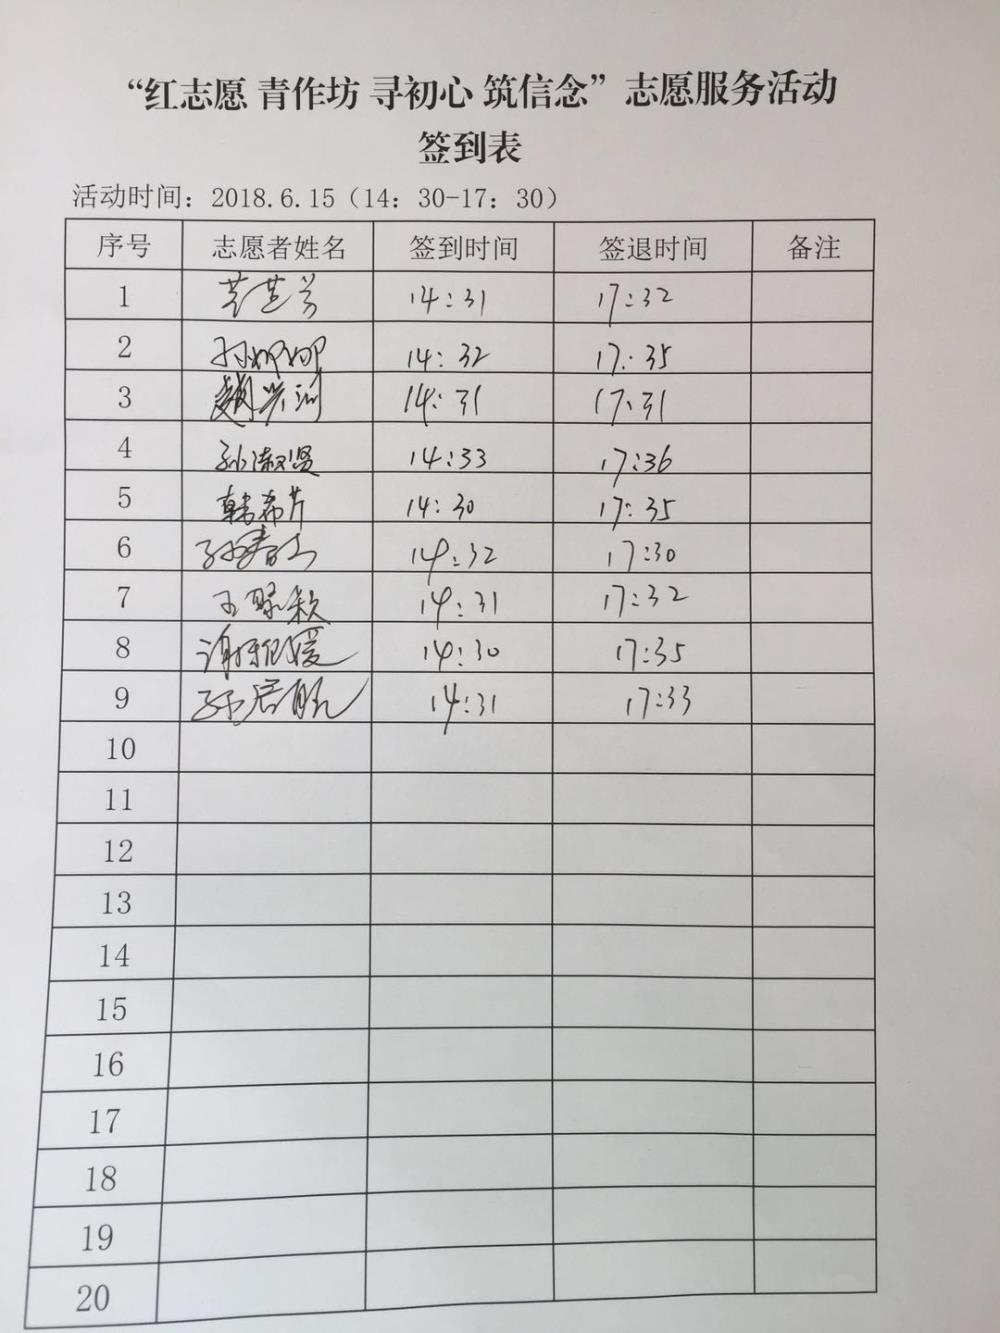 “红志愿 青作坊 寻初心 筑信念”志愿服务活动
签到表
活动时间：2018.6.15（14：30-17：30）
序号 志愿者姓名 签到时间 签退时间 备注
1 14:31 17:32
2 孙娜娜 14:32 17:35
3 14:31 17:31
4 孙淑贤 14:33 17:36
5 韩希芹 14:30 17:35
6 14:32 17:30
7 14:31 17:32
8 14:30 17:35
9 14:31 17:33
10
11
12
13
14
15
16
17
18
19
20